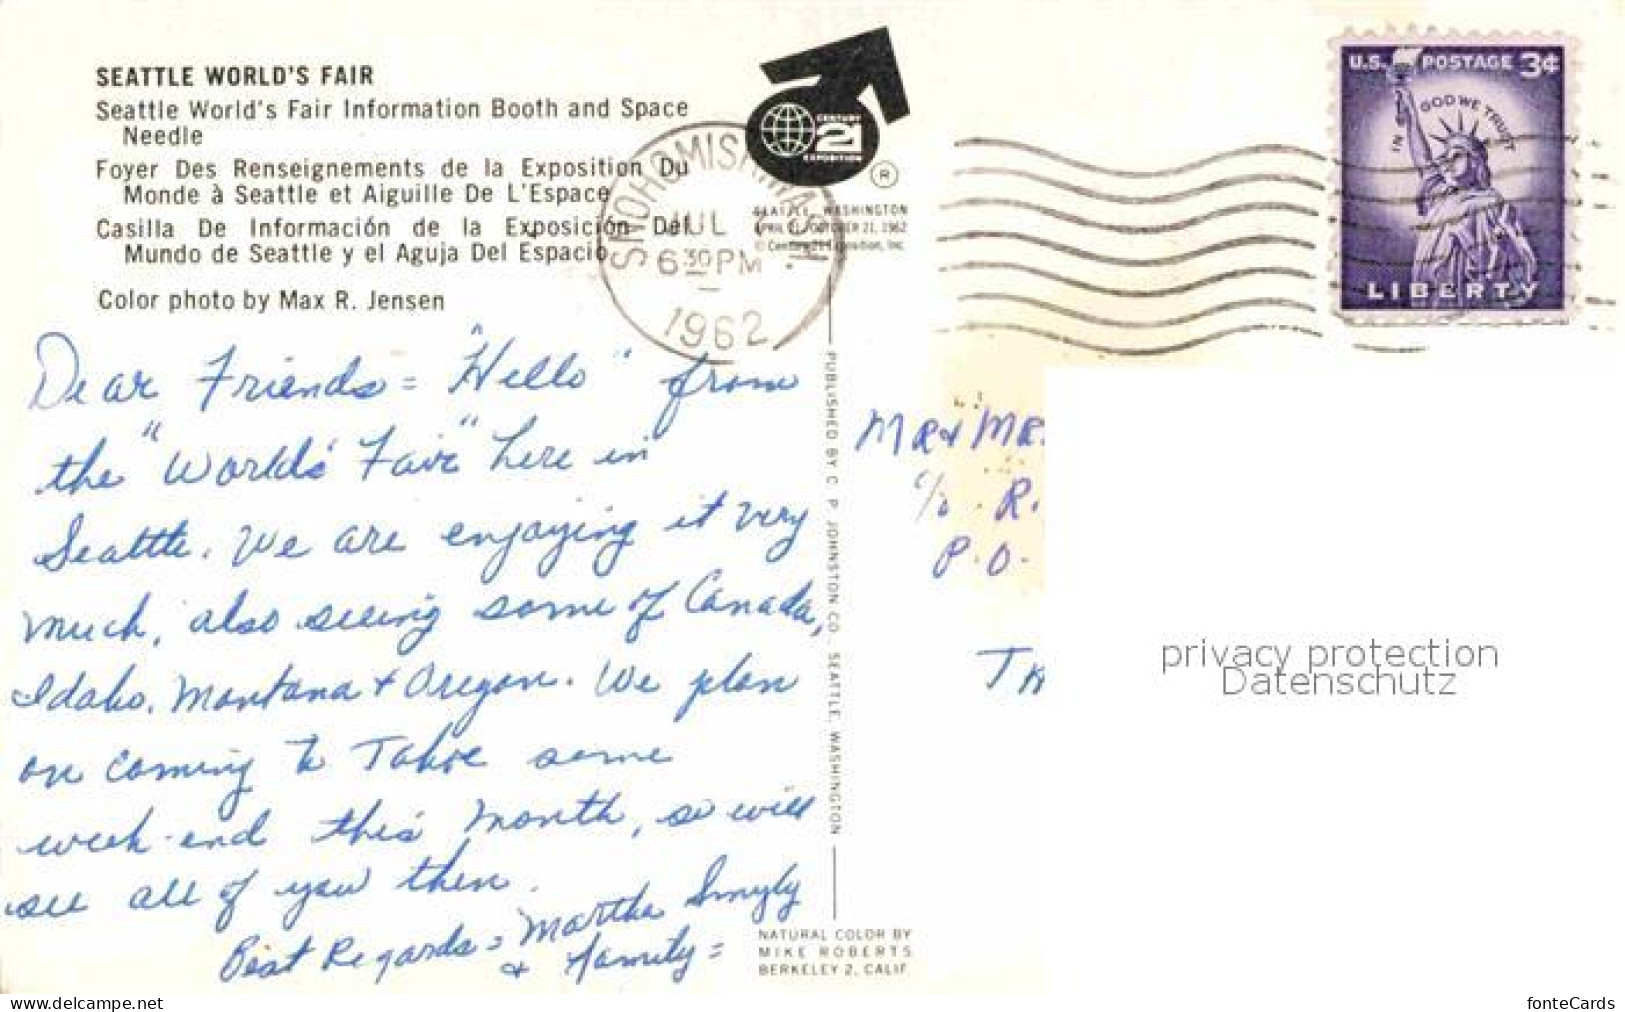 SEATTLE WORLD'S FAIR
Seattle World's Fair Information Booth and Space
Needle
Foyer Des Renseignements de la Exposition Du
Monde à Seattle et Aiguille De L'Espace
Casilla De Información de la Exposición Del
Mundo de Seattle y el Aguja Del Espacio
Color photo by Max R. Jensen
Dear Friends = "Hello" from
the "World's Fair" here in
Seattle. We are enjoying it very
much, also seeing some of Canada,
Idaho, Montana & Oregon. We plan
on coming to Tahoe some
week-end this month, so will
see all of you then.
Best Regards = Martha Smyly
& Family =
CENTURY
21
EXPOSITION
®
SEATTLE, WASHINGTON
APRIL 21/OCTOBER 21, 1962
© Century 21 Exposition, Inc.
SNOHOMISH, WASH.
JUL
6 30 PM
1962
PUBLISHED BY C. P. JOHNSTON CO., SEATTLE, WASHINGTON
NATURAL COLOR BY
MIKE ROBERTS
BERKELEY 2, CALIF.
U.S. POSTAGE 3¢
IN GOD WE TRUST
LIBERTY
MR & MR.
c/o R.
P.O.
privacy protection
Datenschutz
www.delcampe.net
fonteCards